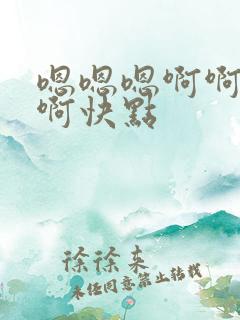 嗯嗯嗯啊啊
啊快點
徐徐来
未经同意禁止转载